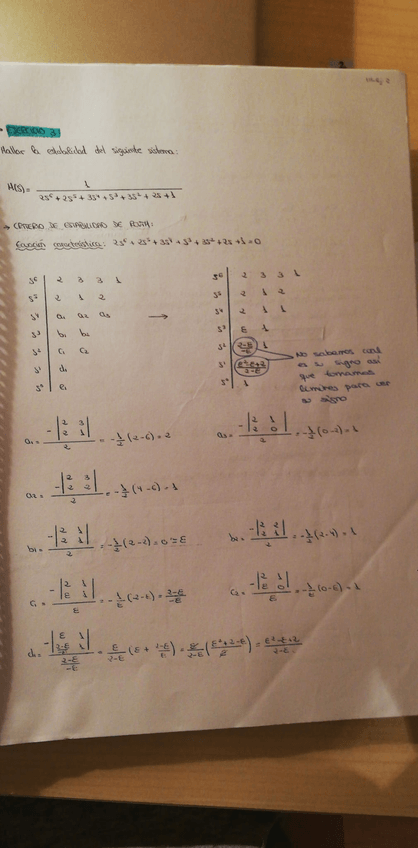 EJERCICIO 3:
Hallar la estabilidad del siguiente sistema:
H(s) = 1 / (2s⁶+2s⁵+3s⁴+s³+3s²+2s+1)
→ CRITERIO DE ESTABILIDAD DE ROUTH:
Ecuación característica: 2s⁶+2s⁵+3s⁴+s³+3s²+2s+1=0
s⁶ | 2 3 3 1
s⁵ | 2 1 2
s⁴ | a₁ a₂ a₃
s³ | b₁ b₂
s² | c₁ c₂
s¹ | d₁
s⁰ | e₁
→
s⁶ | 2 3 3 1
s⁵ | 2 1 2
s⁴ | 2 1 1
s³ | E 1
s² | (2-E)/(-E) 1
s¹ | (E²-E+2)/(2-E)
s⁰ | 1
No sabemos cual
es su signo así
que tomamos
límites para ver
su signo
a₁ = -|2 3; 2 1| / 2 = -1/2 (2-6) = 2
a₃ = -|2 1; 2 0| / 2 = -1/2 (0-2) = 1
a₂ = -|2 3; 2 2| / 2 = -1/2 (4-6) = 1
b₁ = -|2 1; 2 1| / 2 = -1/2 (2-2) = 0 ≃ E
b₂ = -|2 2; 2 1| / 2 = -1/2 (2-4) = 1
c₁ = -|2 1; E 1| / E = -1/E (2-E) = (2-E)/(-E)
c₂ = -|2 1; E 0| / E = -1/E (0-E) = 1